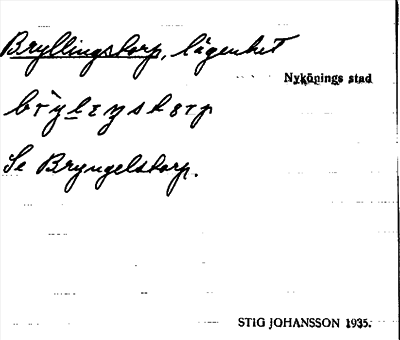 Bryllingstorp, lägenhet
Nyköpings stad
Se Bryngelstorp.
STIG JOHANSSON 1935.